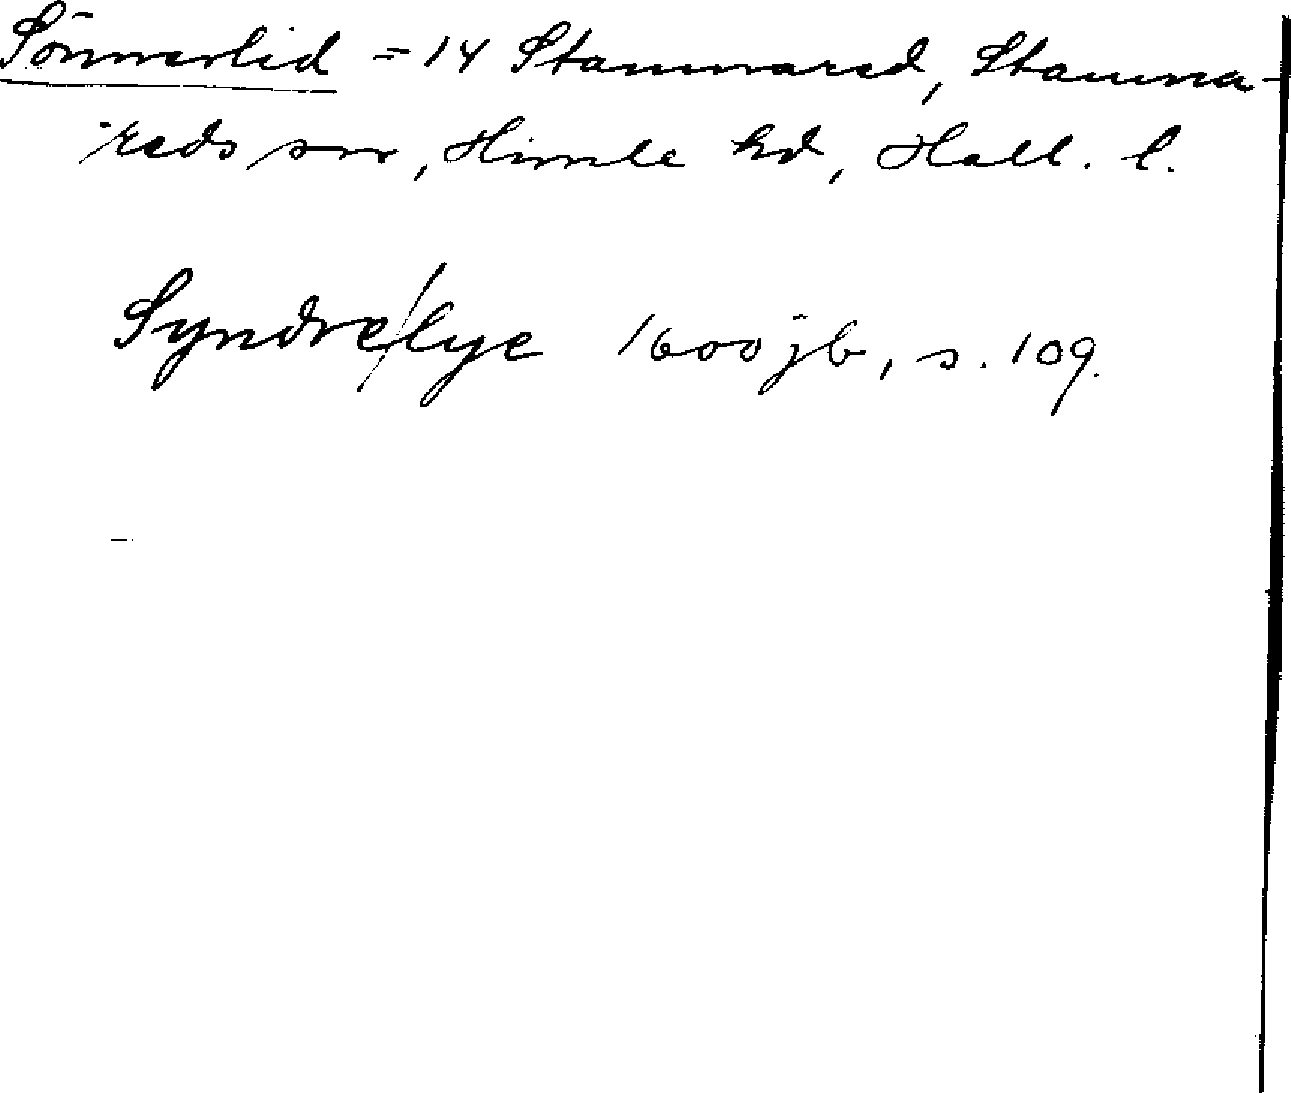 Sönnerlid = 14 Stamnared, Stamna-
reds sn, Himle hd, Hall. l.
Syndre/lye 1600 jb, s. 109.